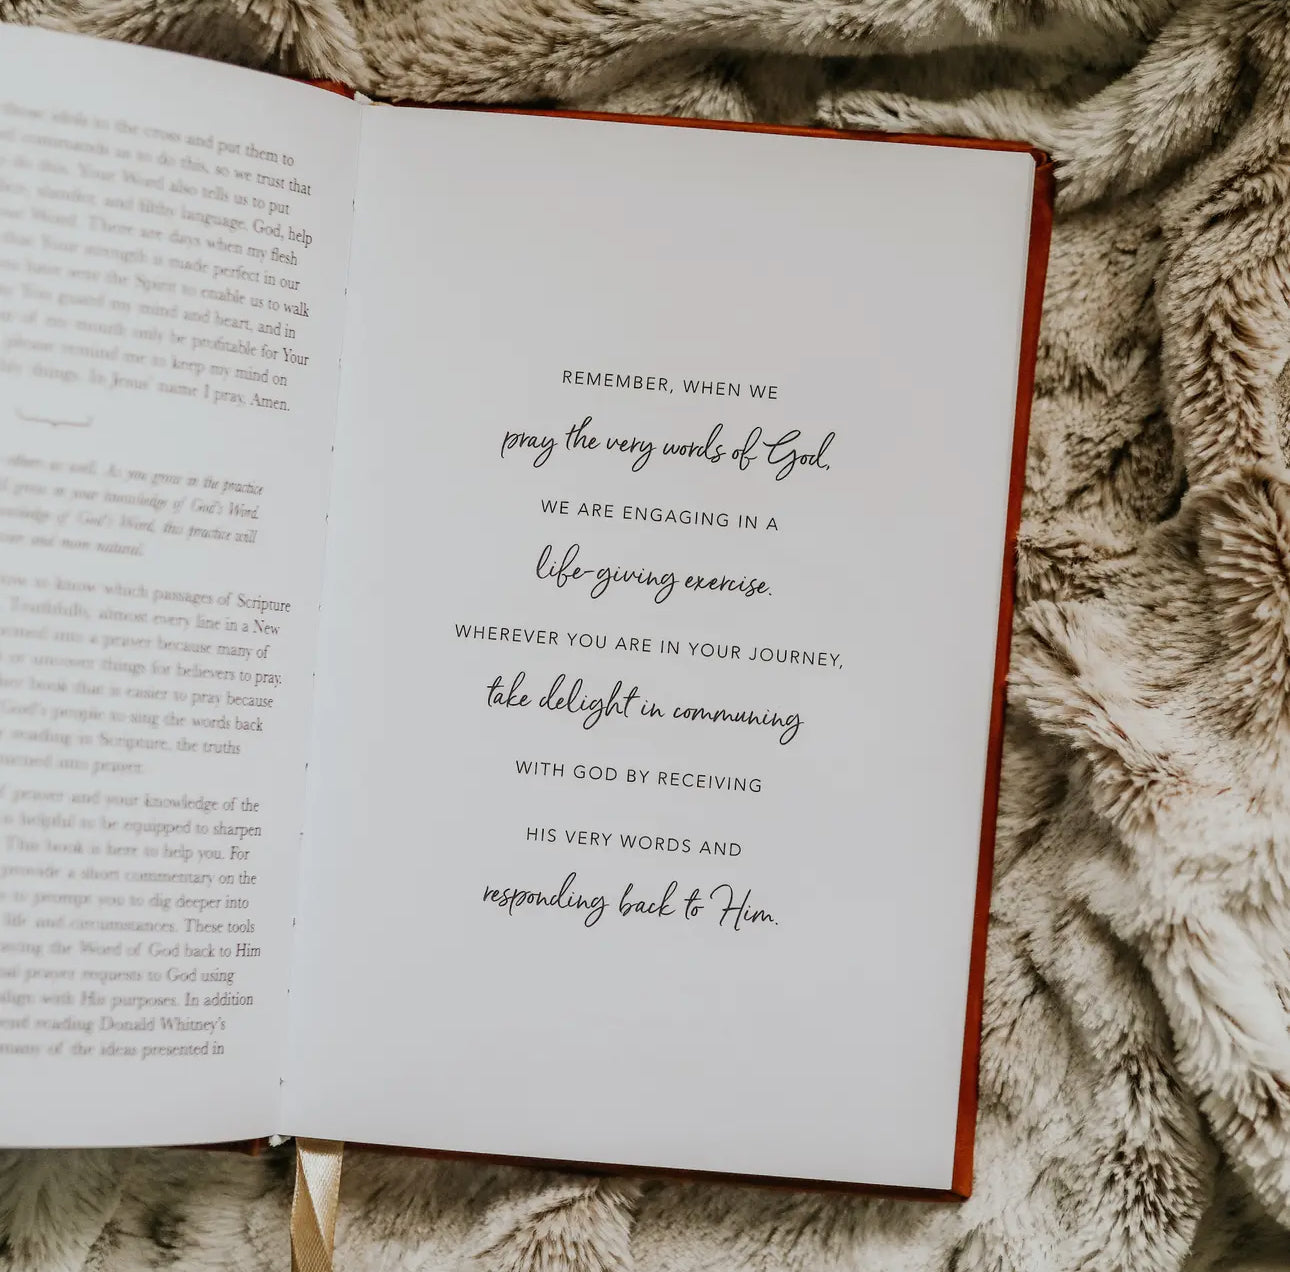 idols to the cross and put them to
commands us to do this, so we trust that
do this. Your Word also tells us to put
slander, and filthy language. God, help
Word. There are days when my flesh
that Your strength is made perfect in our
have sent the Spirit to enable us to walk
You guard my mind and heart, and in
of my mouth only be profitable for Your
please remind me to keep my mind on
things. In Jesus' name I pray, Amen.
others as well. As you grow in the practice
grow in your knowledge of God's Word.
knowledge of God's Word, this practice will
and more natural.
to know which passages of Scripture
Truthfully, almost every line in a New
turned into a prayer because many of
or uncover things for believers to pray.
book that is easier to pray because
God's people to sing the words back
reading in Scripture, the truths
turned into prayer.
prayer and your knowledge of the
helpful to be equipped to sharpen
This book is here to help you. For
provide a short commentary on the
to prompt you to dig deeper into
life and circumstances. These tools
praying the Word of God back to Him
prayer requests to God using
align with His purposes. In addition
reading Donald Whitney's
many of the ideas presented in
REMEMBER, WHEN WE
pray the very words of God,
WE ARE ENGAGING IN A
life-giving exercise.
WHEREVER YOU ARE IN YOUR JOURNEY,
take delight in communing
WITH GOD BY RECEIVING
HIS VERY WORDS AND
responding back to Him.